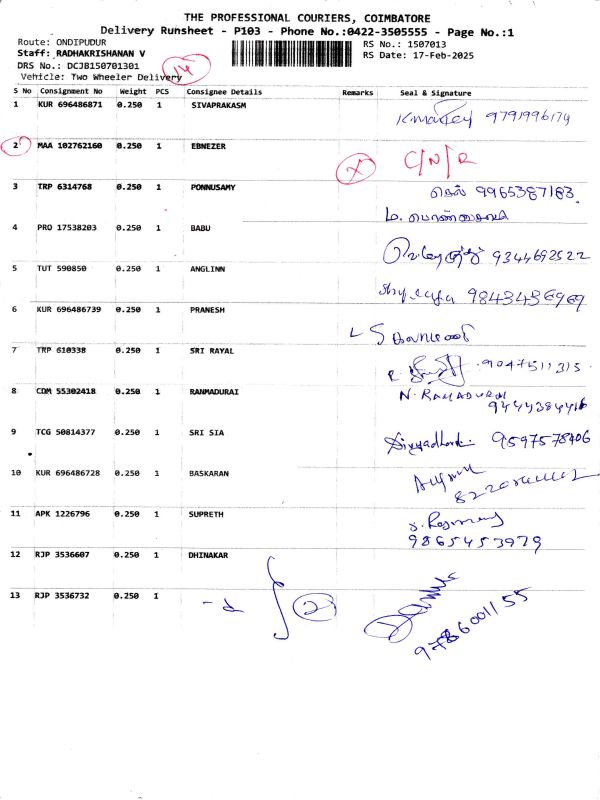 THE PROFESSIONAL COURIERS, COIMBATORE
Delivery Runsheet - P103 - Phone No.:0422-3505555 - Page No.:1
Route: ONDIPUDUR
RS No.: 1507013
Staff: RADHAKRISHANAN V
RS Date: 17-Feb-2025
DRS No.: DCJB150701301
14
Vehicle: Two Wheeler Delivery
S No Consignment No Weight PCS Consignee Details Remarks Seal & Signature
1 KUR 696486871 0.250 1 SIVAPRAKASM
9791996174
2 MAA 102762160 0.250 1 EBNEZER X C/N/R
3 TRP 6314768 0.250 1 PONNUSAMY
9965387183
4 PRO 17538203 0.250 1 BABU
9344692522
5 TUT 590850 0.250 1 ANGLINN
9843436969
6 KUR 696486739 0.250 1 PRANESH
7 TRP 610338 0.250 1 SRI RAYAL
9047511315
8 CDM 55302418 0.250 1 RANMADURAI N. RAMADURAI
9444384416
9 TCG 50814377 0.250 1 SRI SIA
9597578406
10 KUR 696486728 0.250 1 BASKARAN
11 APK 1226796 0.250 1 SUPRETH
9865453979
12 RJP 3536607 0.250 1 DHINAKAR
13 RJP 3536732 0.250 1 -d 2
9786001155